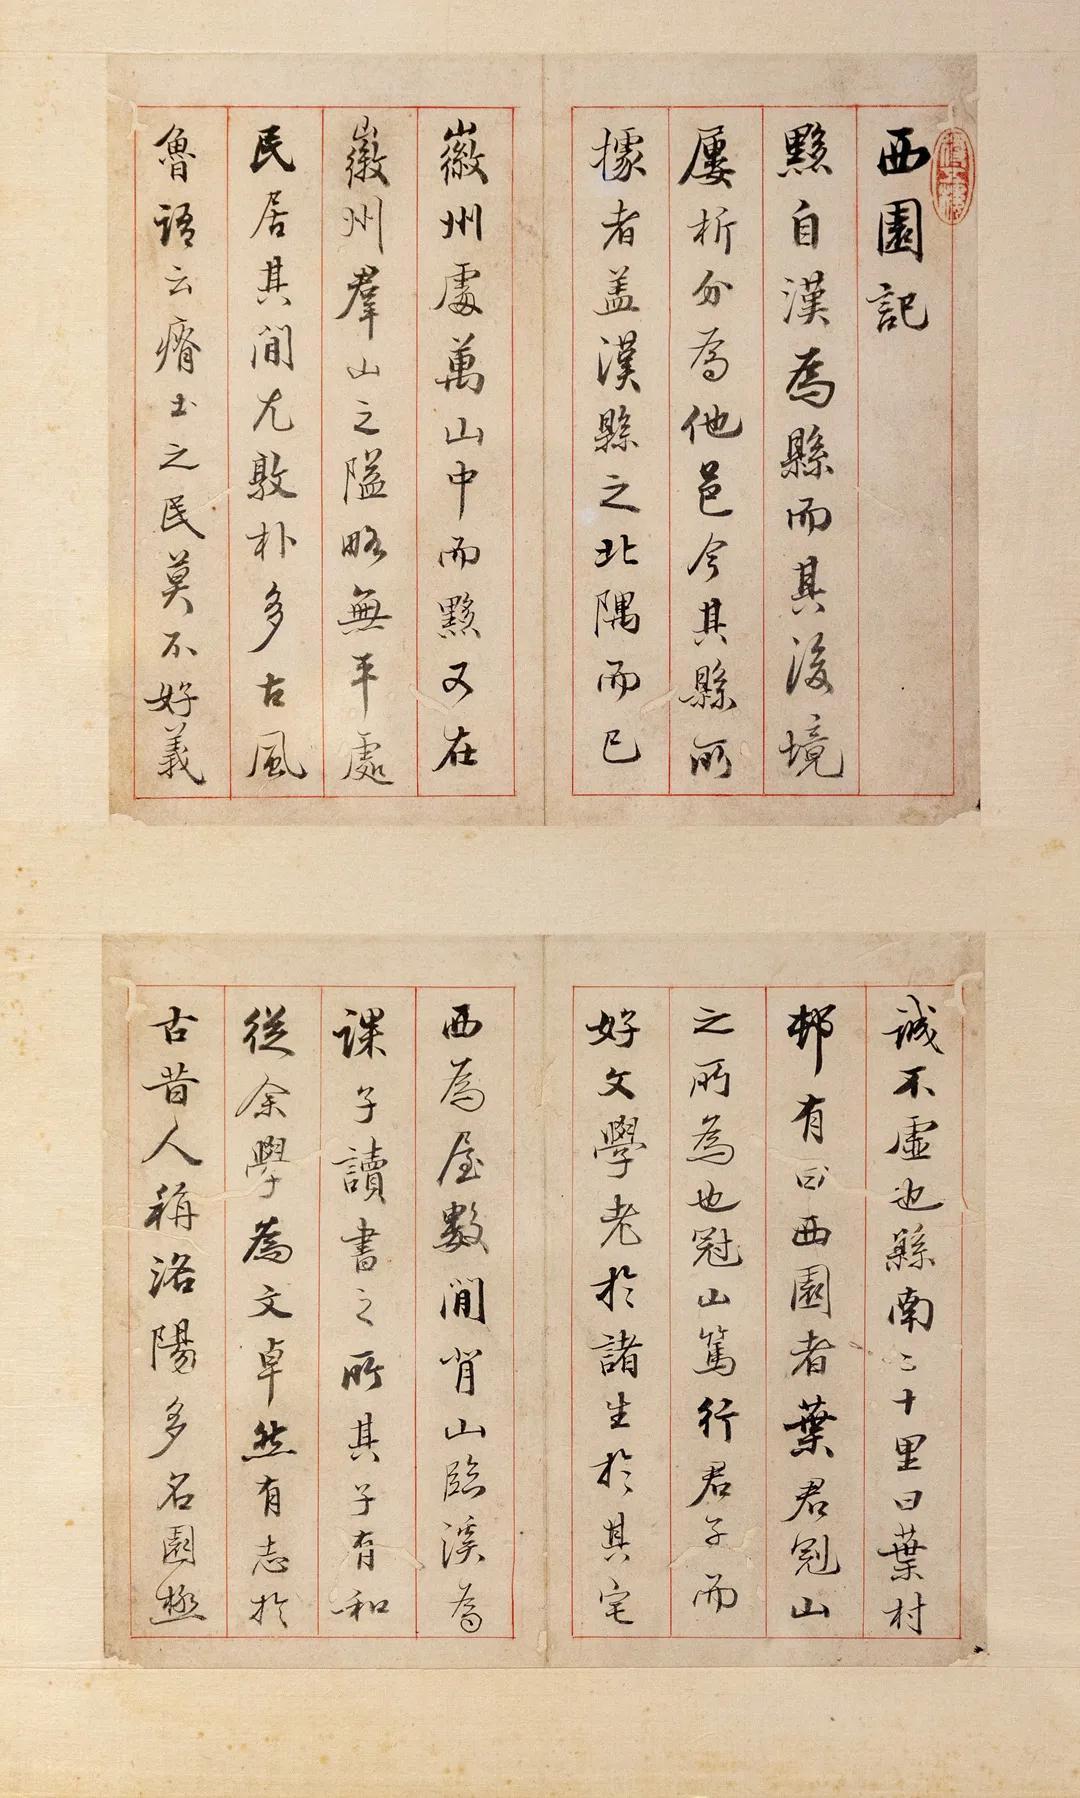 西園記
黟自漢為縣而其後境
屢析分為他邑今其縣所
據者盖漢縣之北隅而已
徽州處萬山中而黟又在
徽州羣山之隘略無平處
民居其間尤敦朴多古風
魯語云瘠土之民莫不好義
誠不虛也縣南二十里曰葉村
邨有曰西園者葉君冠山
之所為也冠山篤行君子而
好文學老於諸生於其宅
西為屋數間背山臨溪為
課子讀書之所其子有和
從余學為文卓然有志於
古昔人稱洛陽多名園極